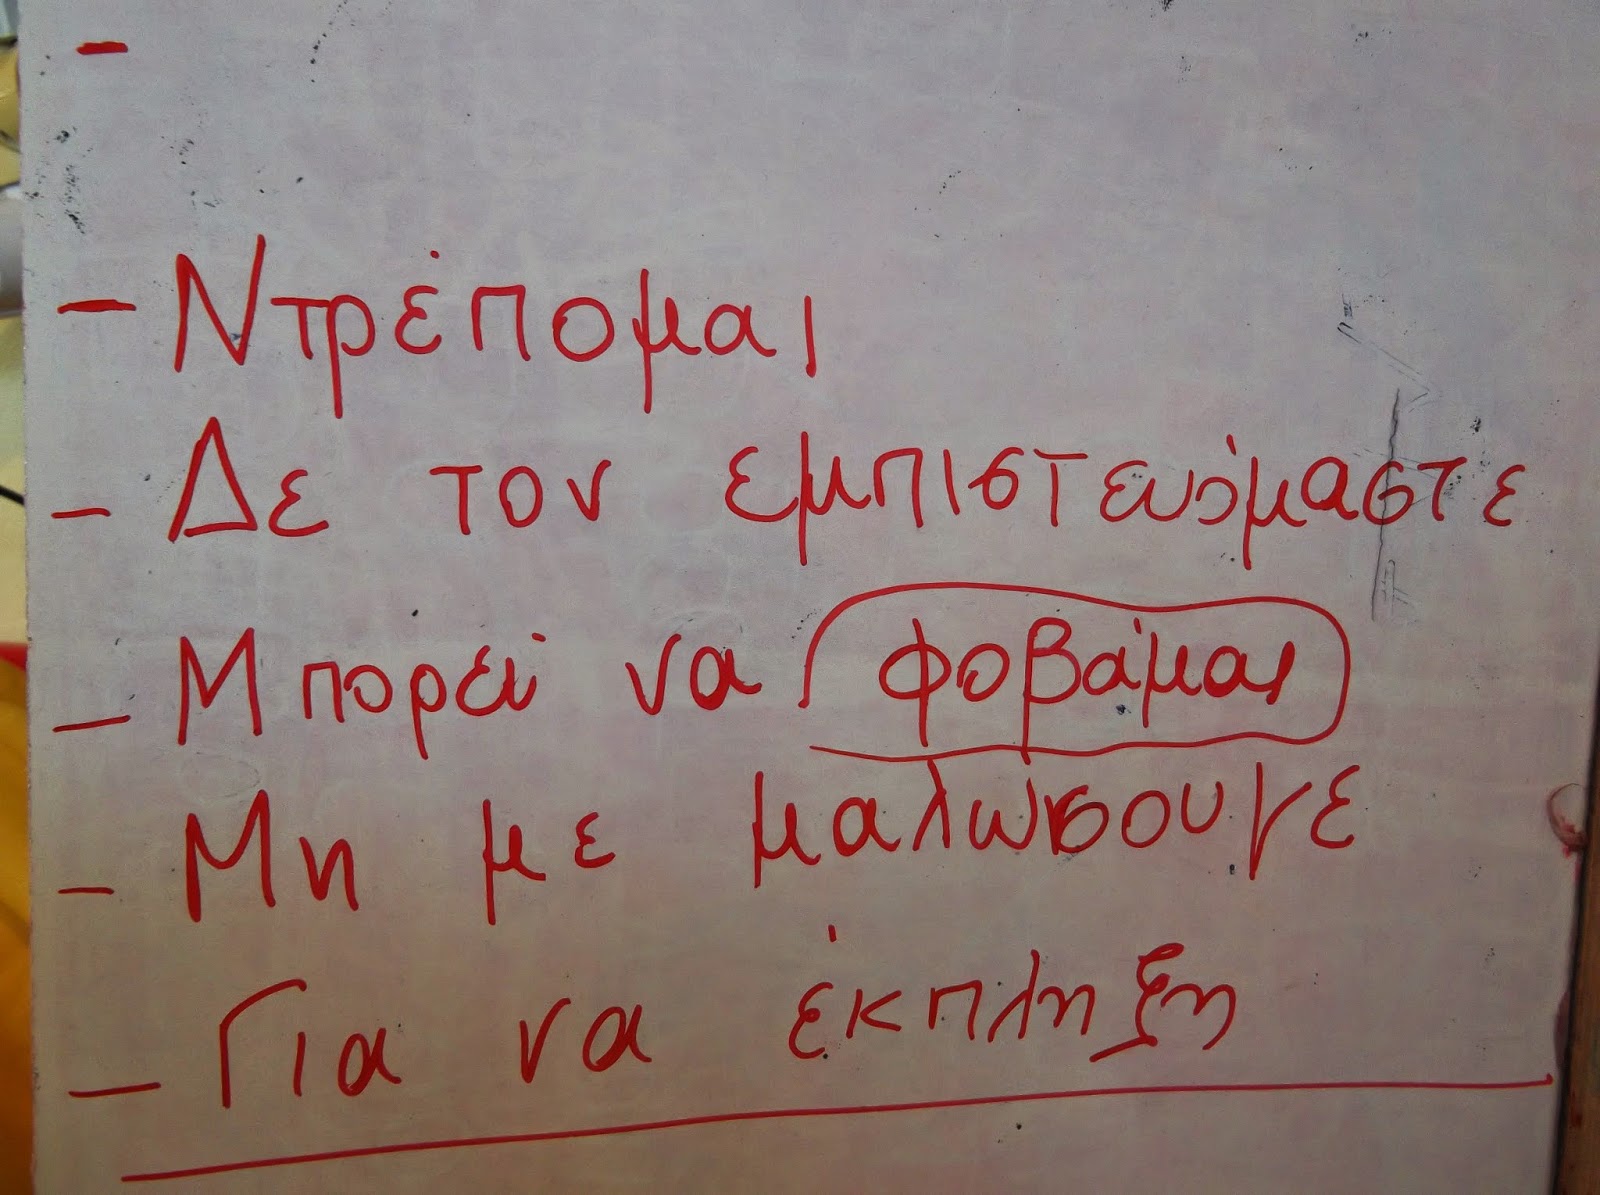 -
- Ντρέπομαι
- Δε τον εμπιστευόμαστε
- Μπορεί να φοβάμαι
- Μη με μαλώσουνε
- Για να έκπληξη